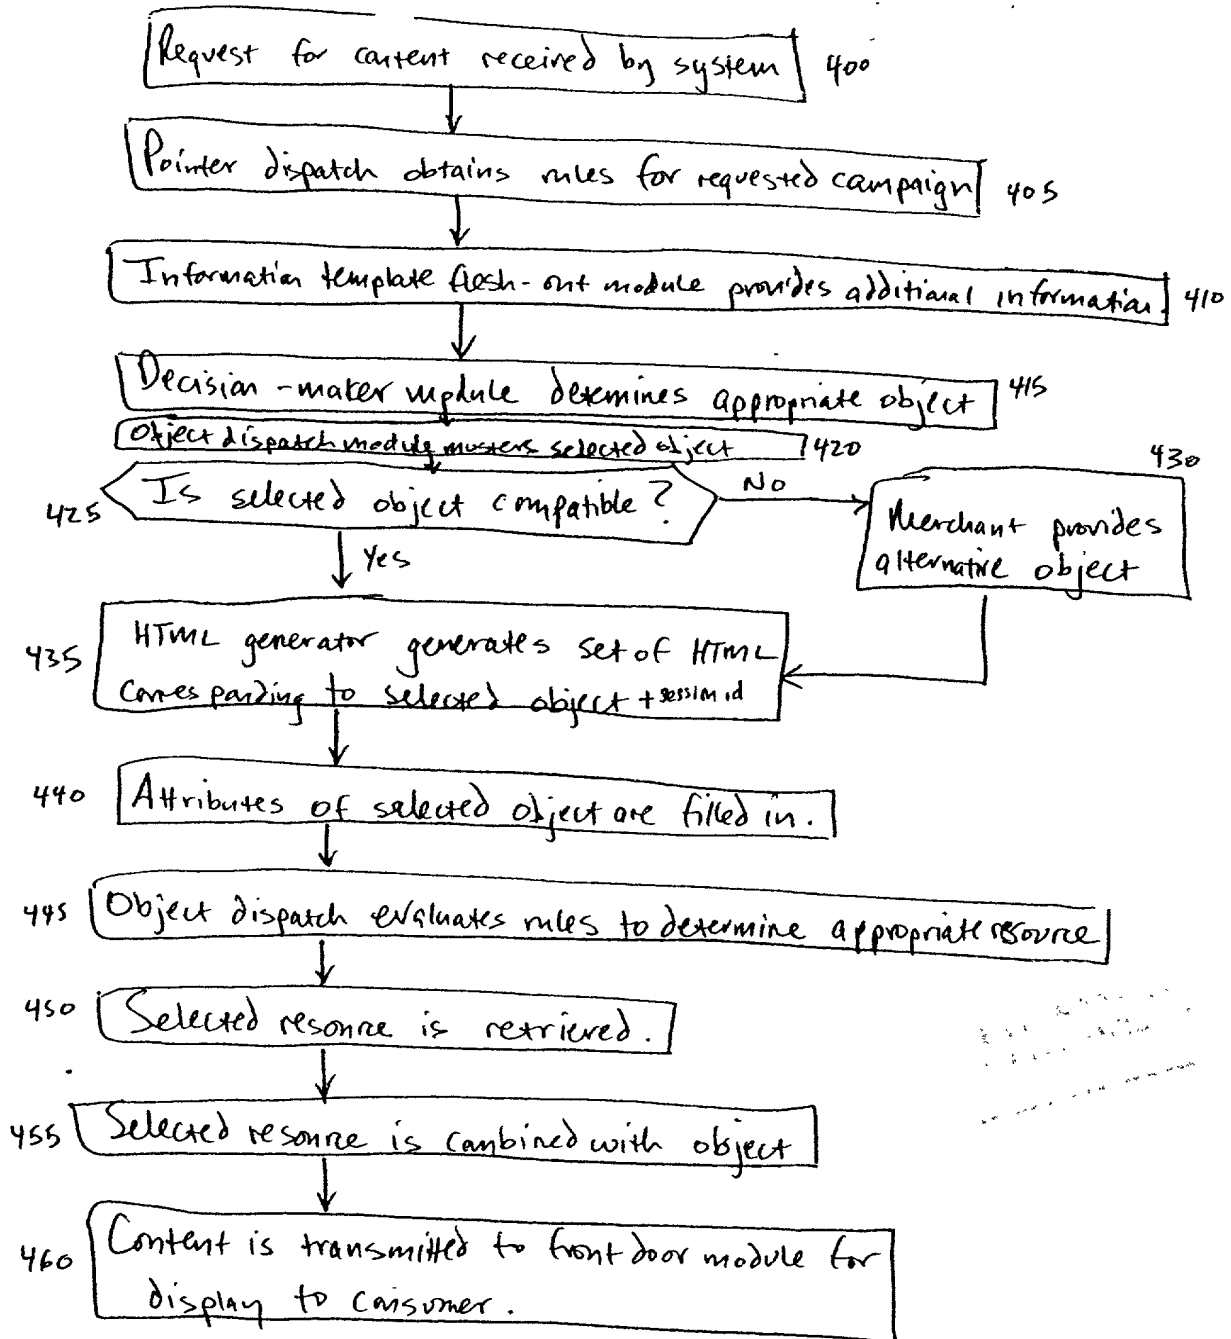 Request for content received by system 400
Pointer dispatch obtains rules for requested campaign 405
Information template flesh-out module provides additional information. 410
Decision-maker module determines appropriate object 415
Object dispatch module musters selected object 420
430
425 Is selected object compatible? No
Merchant provides
alternative object
Yes
435 HTML generator generates set of HTML
corresponding to selected object + session id
440 Attributes of selected object are filled in.
445 Object dispatch evaluates rules to determine appropriate resource
450 Selected resource is retrieved.
455 Selected resource is combined with object
460 Content is transmitted to front door module for
display to consumer.